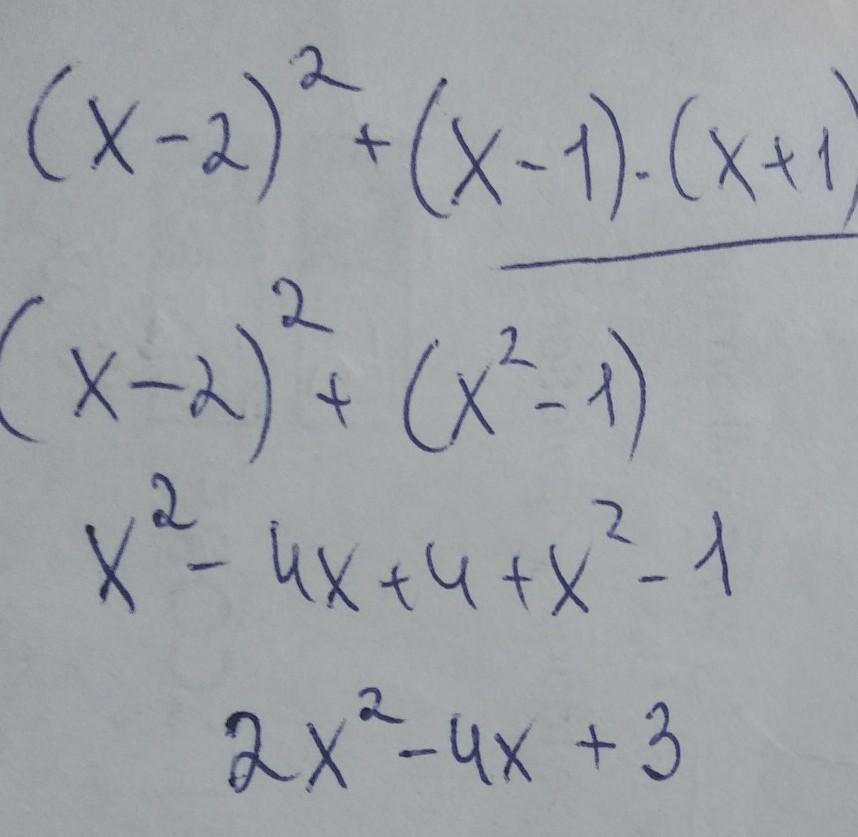 (x-2)² + (x-1)·(x+1)
(x-2)² + (x²-1)
x² - 4x + 4 + x² - 1
2x² - 4x + 3